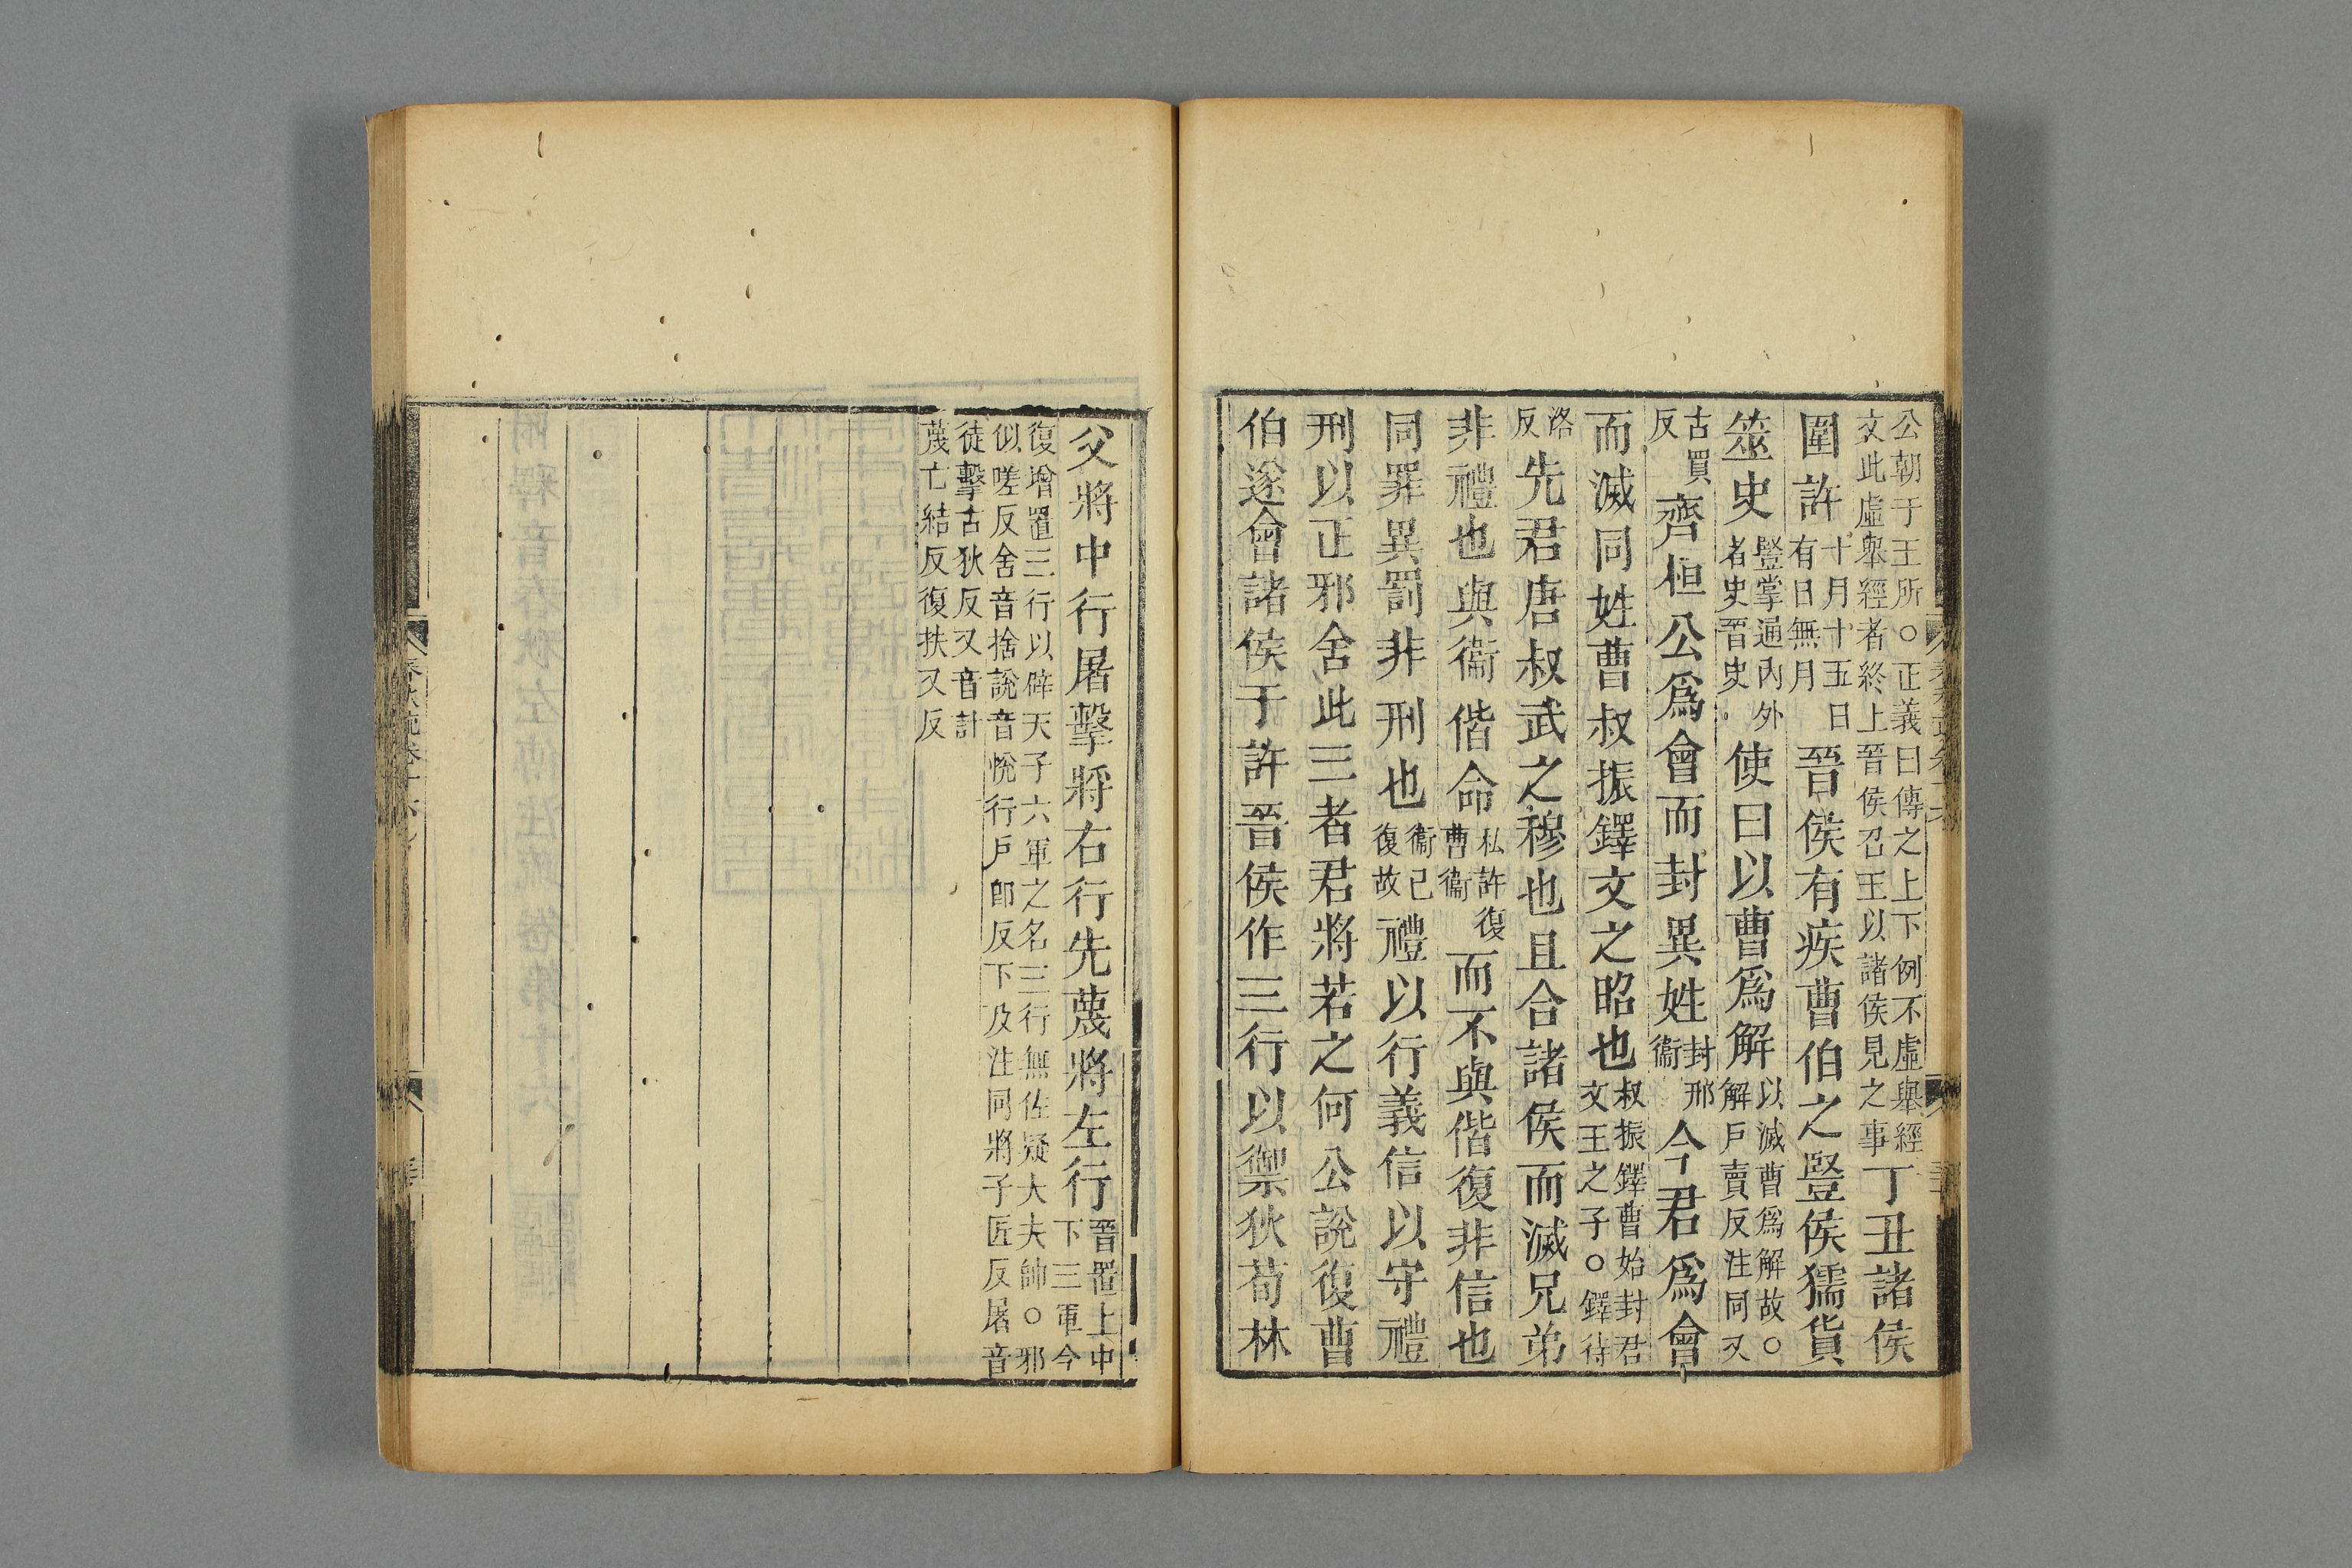 公朝于王所○正義曰傳之上下例不虛舉經
文此虛舉經者終上晉侯召王以諸侯見之事丁丑諸侯
圍許十月十五日有日無月晉侯有疾曹伯之豎侯獳貨
筮史豎掌通內外者史晉史使曰以曹爲解以滅曹爲解故○解戸賣反注同又
古買反齊桓公爲會而封異姓封邢衞今君爲會
而滅同姓曹叔振鐸文之昭也叔振鐸曹始封君文王之子○鐸待
洛反先君唐叔武之穆也且合諸侯而滅兄弟
非禮也與衞偕命私許復曹衞而不與偕復非信也
同罪異罰非刑也衞已復故禮以行義信以守禮
刑以正邪舍此三者君將若之何公說復曹
伯遂會諸侯于許晉侯作三行以禦狄荀林
父將中行屠擊將右行先蔑將左行晉置上中下三軍今
復增置三行以辟天子六軍之名三行無佐疑大夫帥○邪
似嗟反舍音捨說音悅行戸郎反下及注同將子匠反屠音
徒擊古狄反又音計
蔑亡結反復扶又反